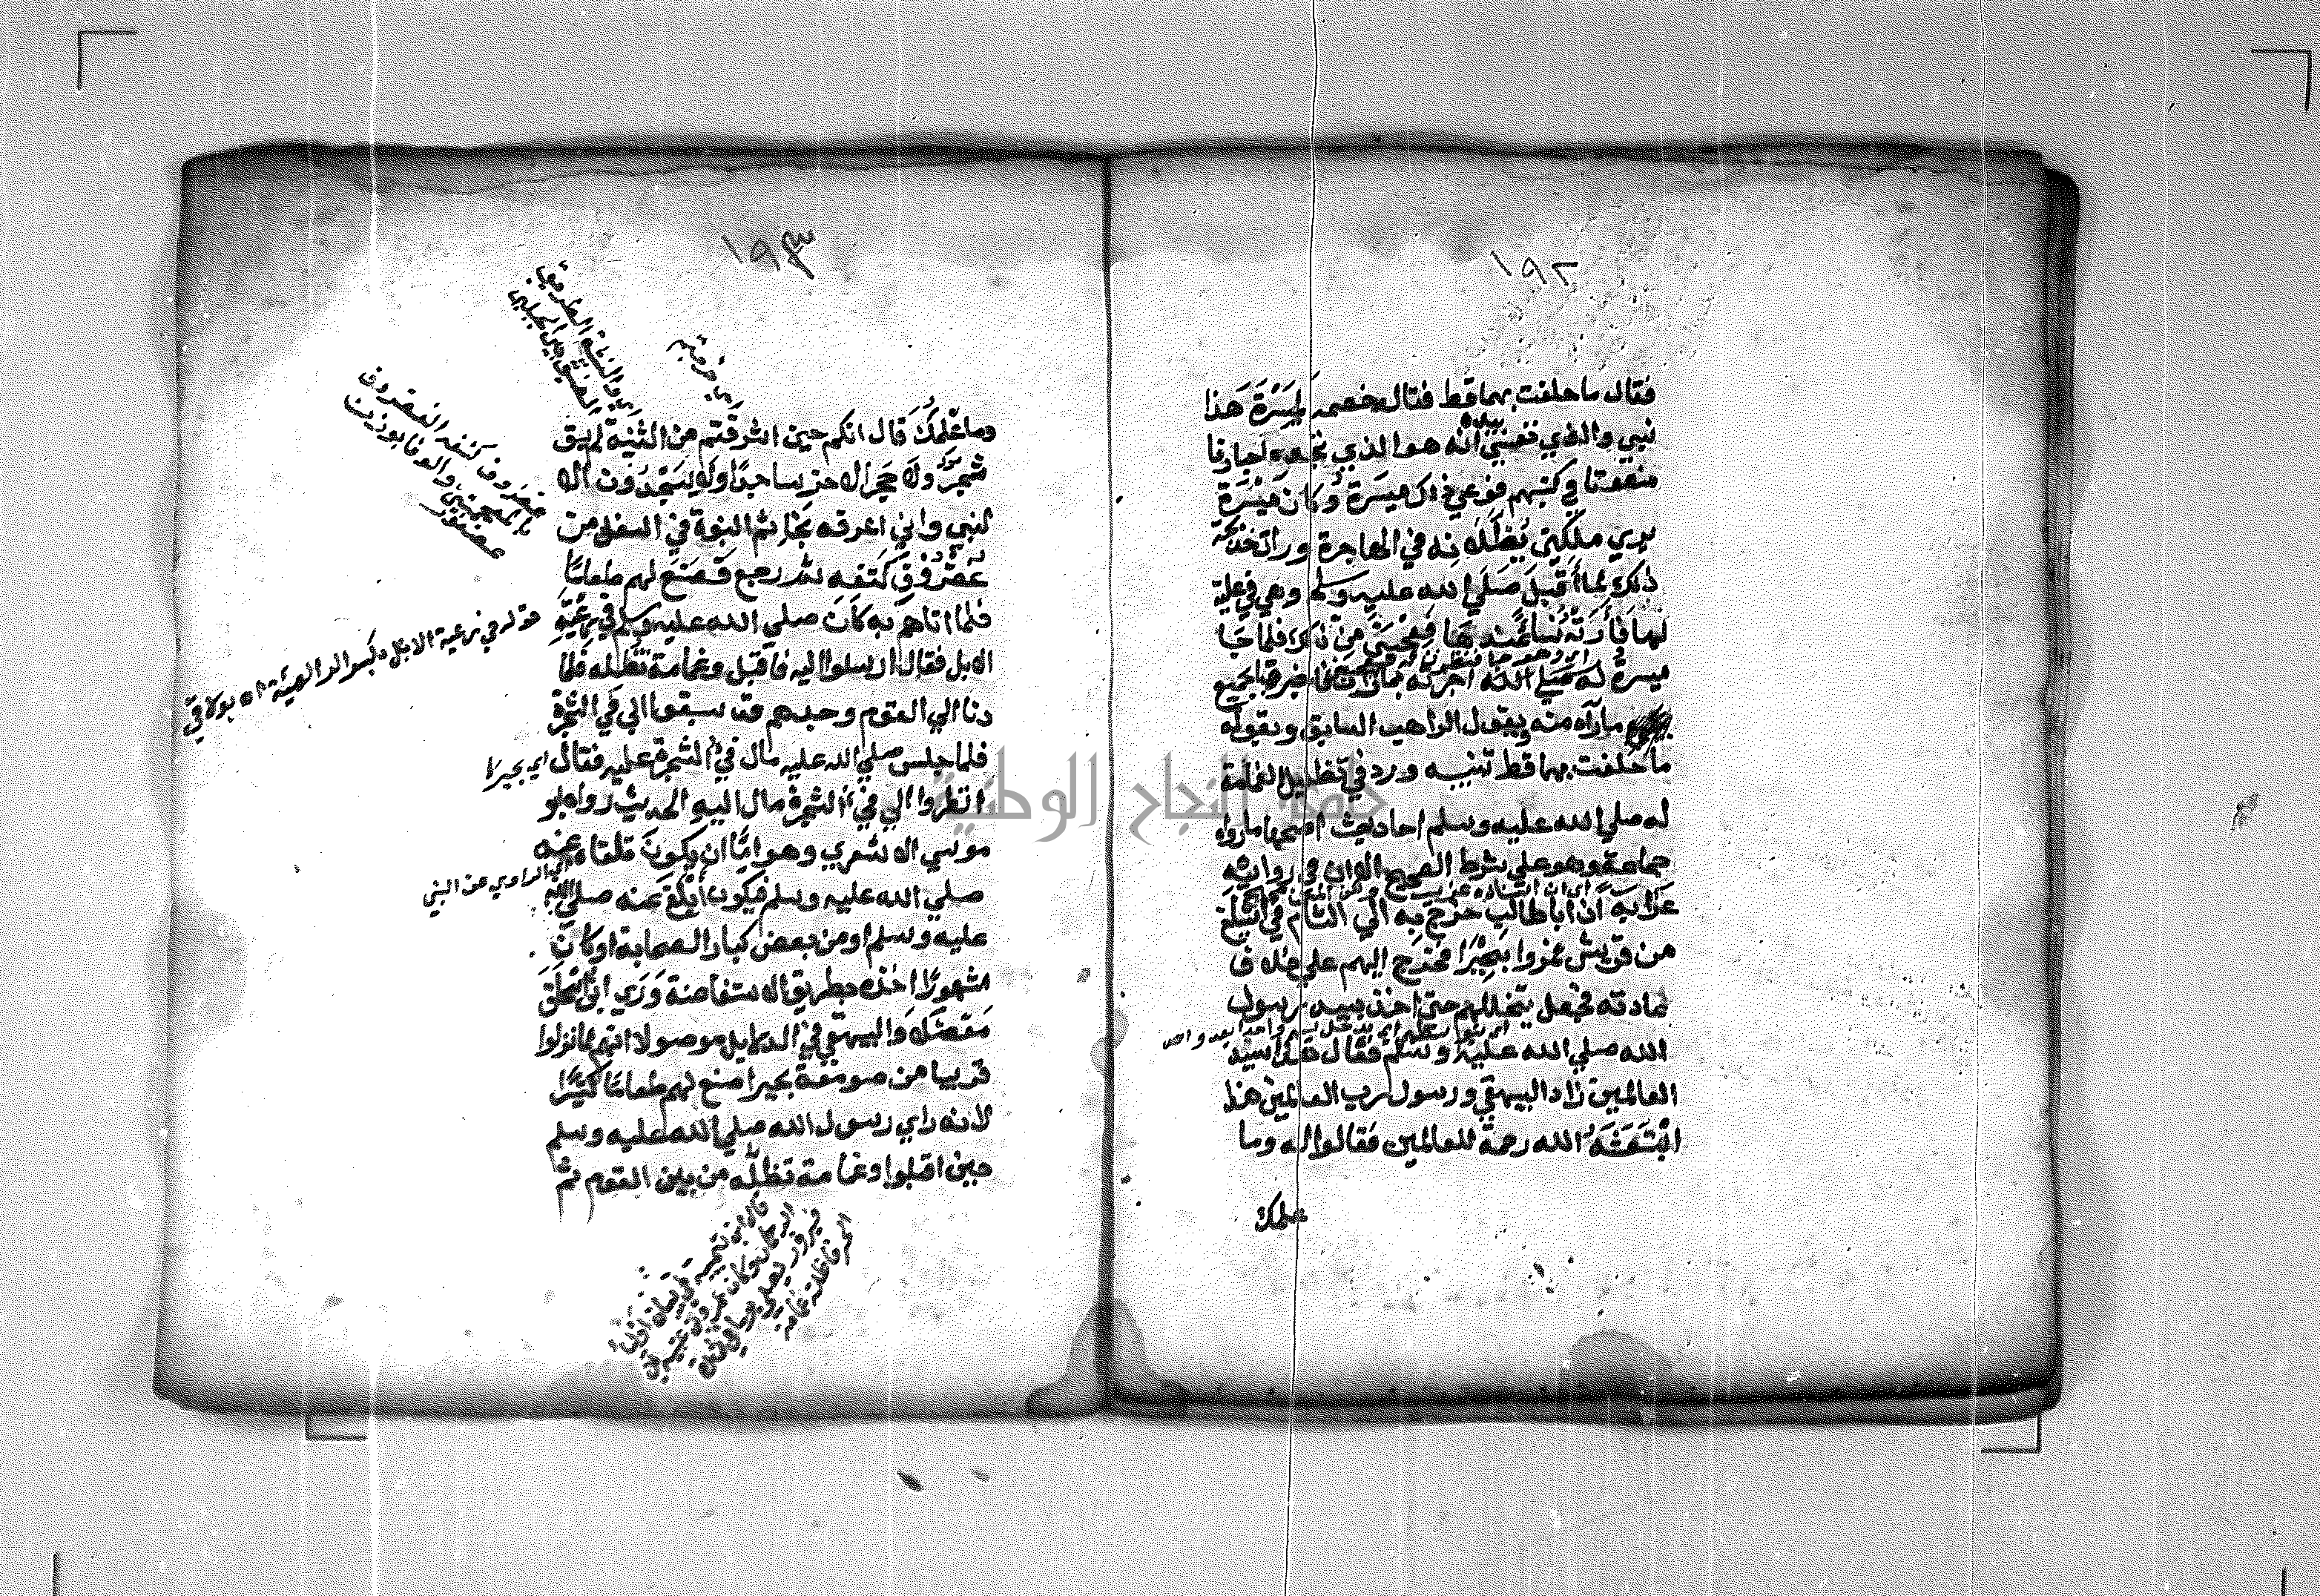 ١٩٢
فقال ما حلفت بهما قط فقال خصمه لميسرة هذا
نبي والذي نفسي بيده انه هو الذي تجده احبارنا
منعوتا في كتبهم فوعي ذلك ميسرة وكان ميسرة
يري ملكين يظلانه في الهاجرة ورات خديجة
ذلك لما أقبل صلي الله عليه وسلم وهي في علية
لها فأرته نساء عندها فعجبن من ذلك فلما جا
ميسرة له صلي الله اخبرته بما رأت فاخبرها بجميع
مارآه منه وبقول الراهب السابق وبقوله
ما حلفت بهما قط تنبيه ورد في تظليل الغمامة
له صلي الله عليه وسلم احاديث اصحها ما رواه
جماعة وهو علي شرط الصحيح الا ان في روايته
غرابة ان ابا طالب خرج به الي الشام في اشياخ
من قريش فمروا ببحيرا فخرج اليهم علي خلاف
عادته فجعل يتخللهم حتي اخذ بيد رسول
الله صلي الله عليه وسلم فقال هذا سيد
العالمين زاد البيهقي ورسول رب العالمين هذا
ابتعثه الله رحمة للعالمين فقالوا له وما
علمك
١٩٣
وما علمك قال انكم حين اشرفتم من الثنية لم يبق
شجر ولا حجر الا خر ساجدا ولا يسجدون الا
لنبي واني اعرفه بخاتم النبوة في اسفل من
غضروف كتفه ثم رجع فصنع لهم طعاما
فلما اتاهم به كان صلي الله عليه وسلم في رعية
الابل فقال ارسلوا اليه فاقبل وغمامة تظله فلما
دنا الي القوم وجدهم قد سبقوا الي في الشجرة
فلما جلس صلي الله عليه مال في الشجرة عليه فقال اي بحيرا
انظروا الي في الشجرة مال اليه الحديث رواه ابو
موسي الاشعري وهو اما ان يكون تلقاه عنه
اي الراوي عن النبي
صلي الله عليه وسلم فيكون أبلغ عنه صلي الله
عليه وسلم او من بعض كبار الصحابة او كان
مشهورا اخذه بطريق الاستفاضة وروي ابن اسحق
معضلا والبيهقي في الدلايل موصولا انهم لما نزلوا
قريبا من صومعة بحيرا صنع لهم طعاما كثيرا
لانه راي رسول الله صلي الله عليه وسلم
حين اقبلوا وغمامة تظله من بين القوم ثم
غضروف كتفه الغضروف
بالمعجمتين والوفا بوزن
عصفور
قوله في رعية الابل بكسر الراء الهيئة اه بولاقي
جامعة النجاح الوطنية